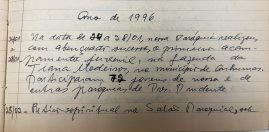 Ano de 1996
24/01 Na data de 24 a 28/01, nossa Paróquia realizou,
com abençoado sucesso, o primeiro acam-
pamento juvenil, na fazenda da
no município de
Participaram 72 jovens de nossa e de
outras paróquias de Pres. Prudente
25/02 - Retiro espiritual no Salão Paroquial,